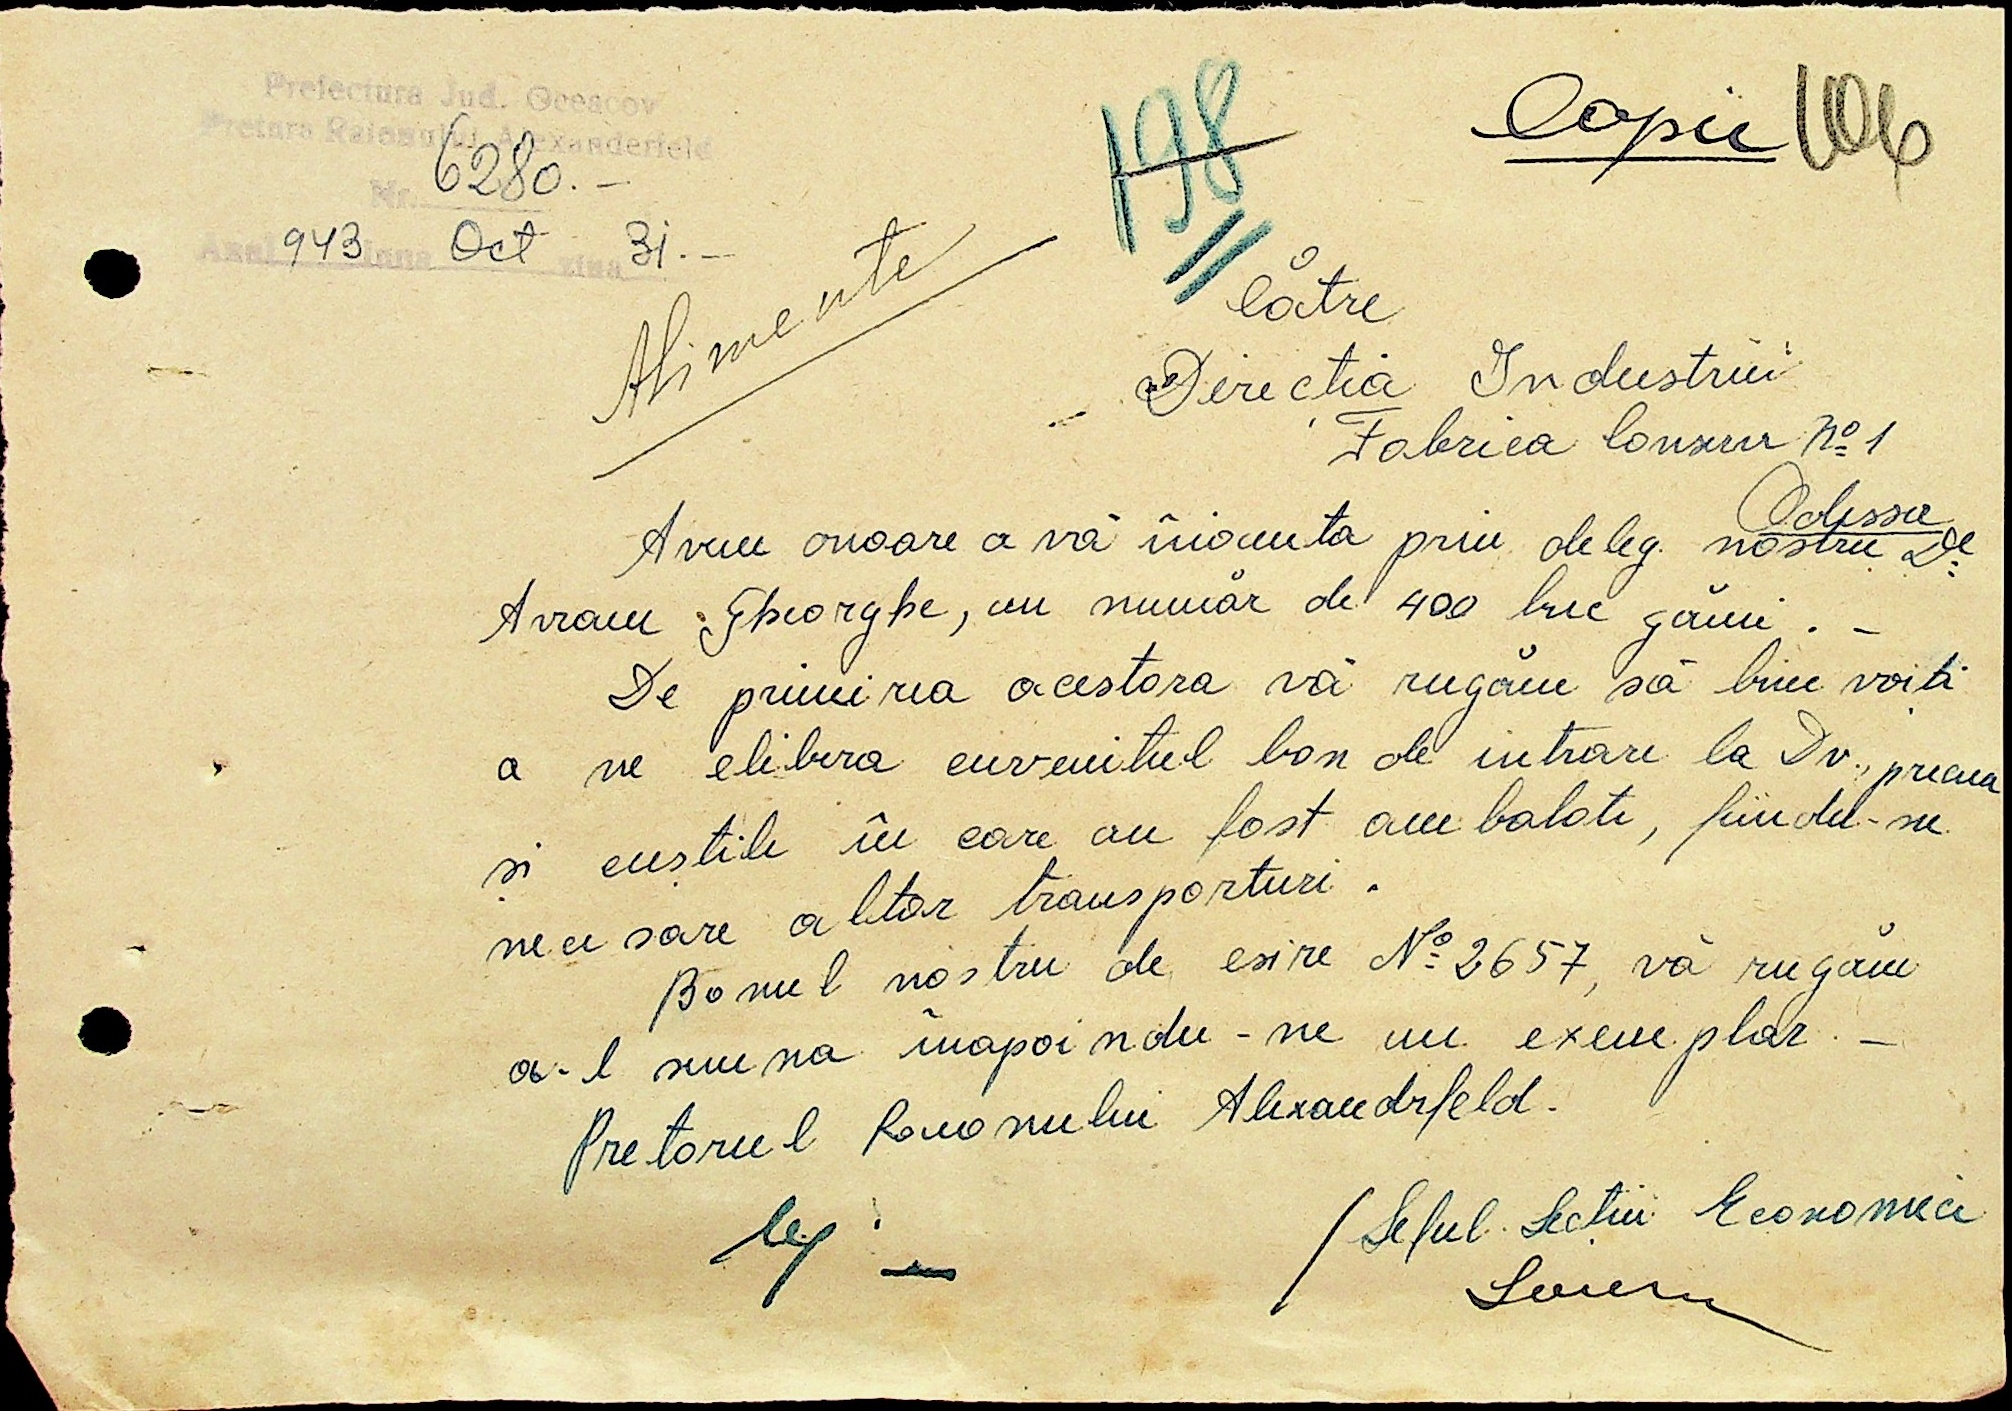 Prefectura Jud. Oceacov
Pretura Raionului Alexanderfeld
Nr. 6280.-
Anul 943 luna Oct ziua 31.-
198
Copie
106
Alimente
Către
Direcția Industriei
Fabrica Conserv Nº 1
Odessa
Avem onoare a vă înainta prin deleg. nostru Dl
Avram Gheorghe, un număr de 400 buc găini. -
De primirea acestora vă rugăm să bine voiti
a ne elibera cuvenitul bon de intrare la Dv., precum
și cuștile în care au fost ambalate, fiindu-ne
necesare altor transporturi.
Bonul nostru de esire Nº 2657, vă rugăm
a-l semna înapoindu-ne un exemplar. -
Pretorul Raionului Alexandrfeld.
Șeful Secției Economice